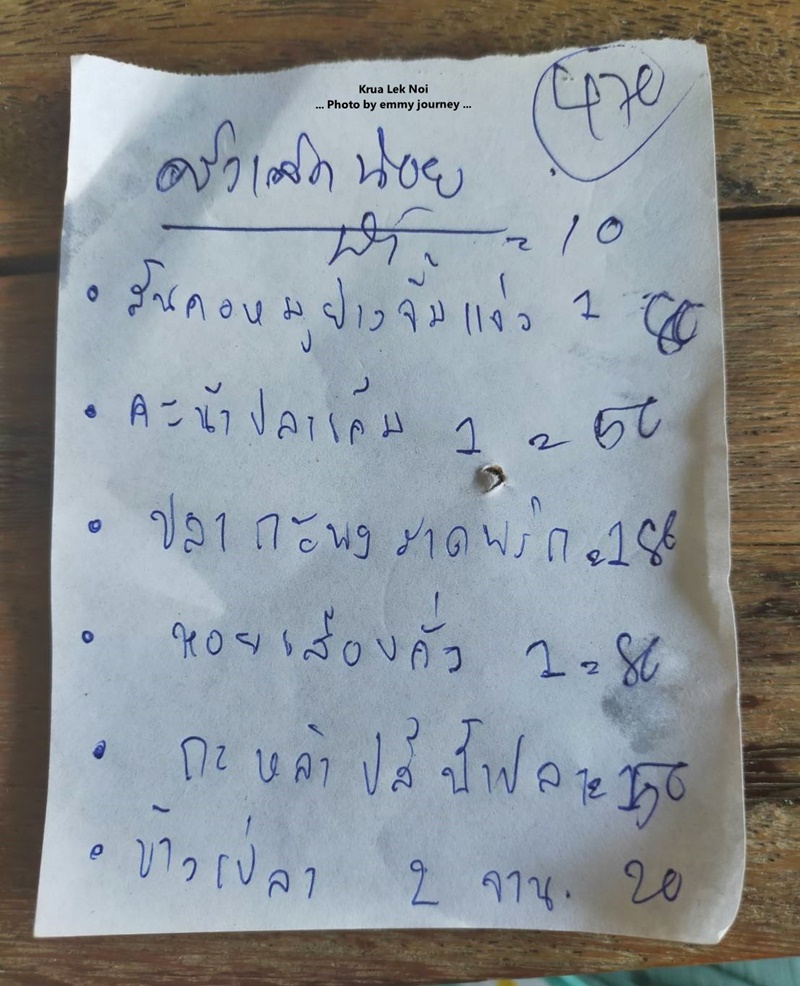 Krua Lek Noi
... Photo by emmy journey ...
470
ครัวเล็กน้อย
น้ำ = 10
• สันคอหมูย่างจิ้มแจ่ว 1 80
• คะน้าปลาเค็ม 1 = 50
• ปลากะพงราดพริก = 180
• หอยเสียบคั่ว 1 = 80
• กะหล่ำปลีน้ำปลา = 50
• ข้าวเปล่า 2 จาน. 20